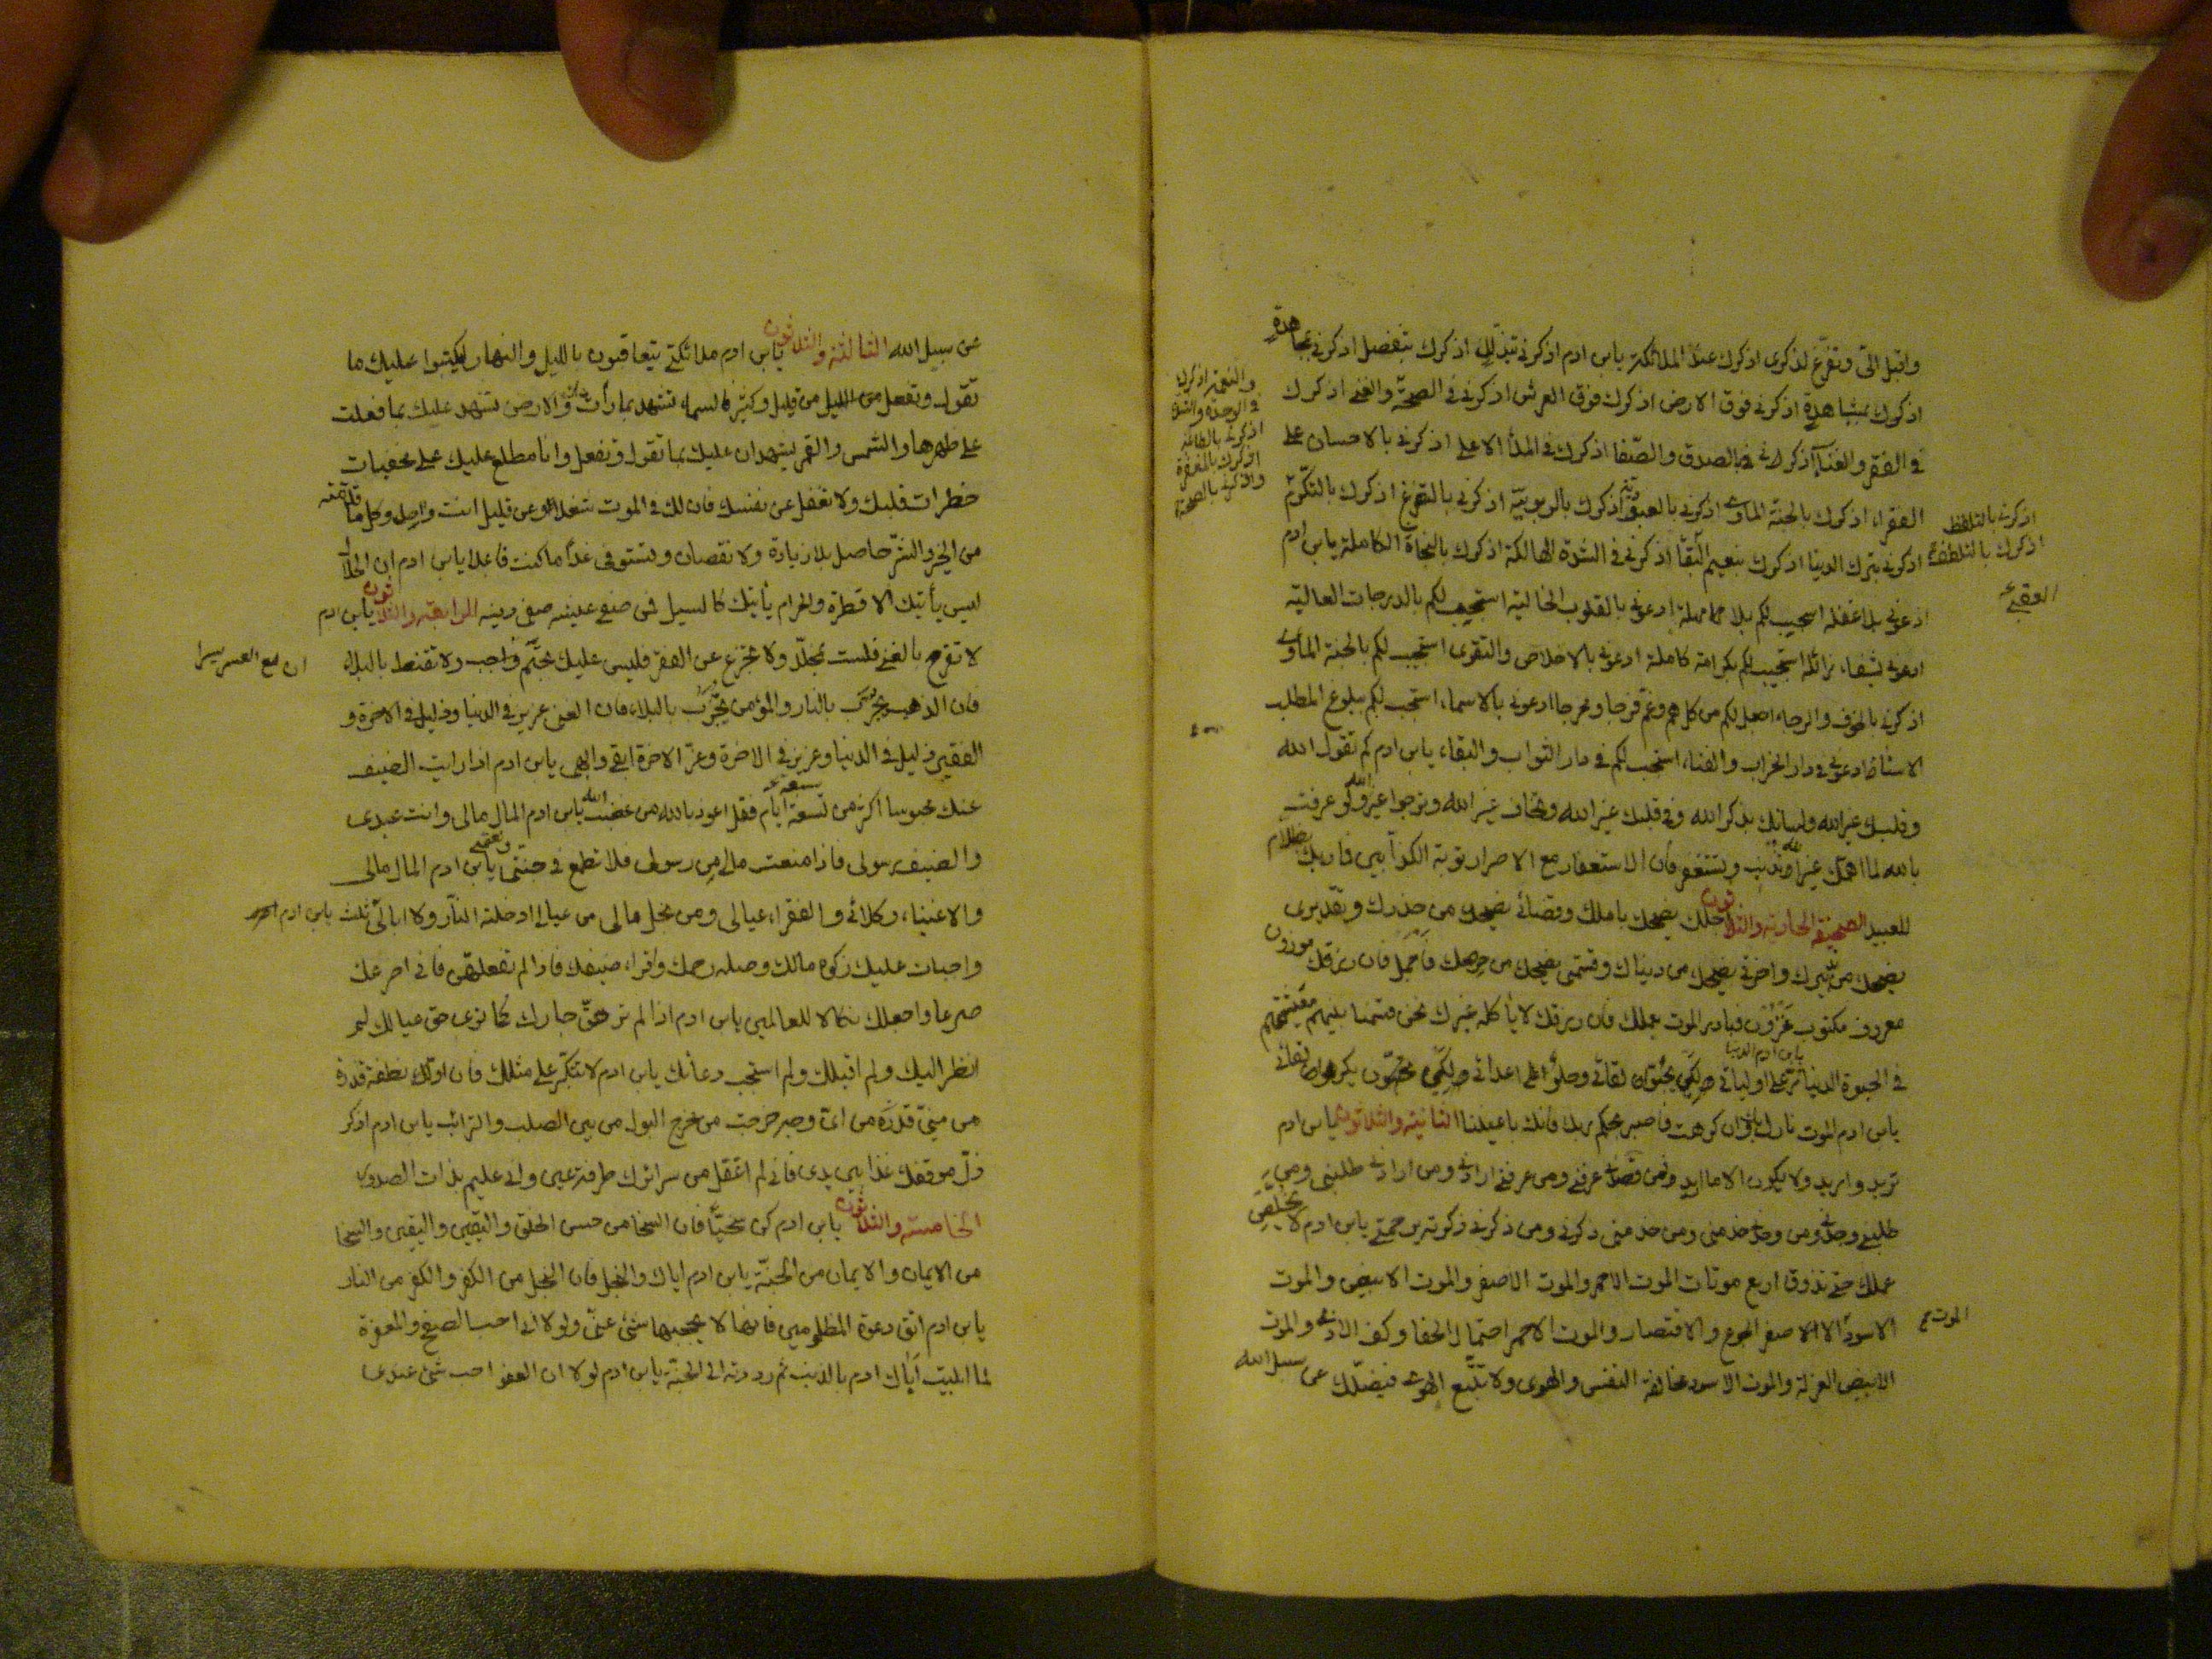 واقبل الىّ وتفرّغ لذكرى اذكرك عند الملائكة يابن ادم اذكرنى بتذلل اذكرك بتفضل اذكرنى بمجاهدة
اذكرك بمشاهدة اذكرنى فوق الارض اذكرك فوق العرش اذكرنى فى الصحة والغنى اذكرك
فى الفقر والعنآ اذكرنى بالصدق والصّفا اذكرك فى الملأ الاعلى اذكرنى بالاحسان على
الفقراء اذكرك بالجنة المأوى اذكرنى بالعبودية اذكرك بالربوبيّة اذكرنى بالتضرع اذكرك بالتكرّم
اذكرنى بالتلفظ
اذكرك بالتلطف
اذكرنى بترك الدنيا اذكرك بنعيم البقآ اذكرنى فى الشدة الهالكة اذكرك بالنجاة الكاملة يابن ادم
ادعونى بلا غفلة استجب لكم بلا مهلة ادعونى بالقلوب الخالية استجب لكم بالدرجات العالية
استجب لكم بكرامة كاملة ادعونى بالاخلاص والتقوى استجب لكم بالجنة المأوى
اذكرنى بالخوف والرجاء اجعل لكم من كل هم وغم فرجا ومخرجا ادعونى بالاسماء استجب لكم ببلوغ المطلب
ادعونى فى دار الخراب والفناء استجب لكم فى دار الثواب والبقاء يابن ادم كم تقول الله
وفى قلبك غير الله ولسانك بذكر الله وفى قلبك غير الله وتخاف غير الله وترجوا غير الله ولو عرفت
بالله لما اهمك غير الله وتذنب وتستغفر فان الاستغفار مع الاصرار توبة الكذّابين وما ربك بظلام
للعبيد الصحيفة الحادية والثلاثون اجلك يضحك باملك وقضائى يضحك من حذرك وتقديرى
يضحك من تدبيرك واخرتى يضحك من دنياك وقسمتى يضحك من حرصك فان رزقك موزون
معروف مكتوب مخزون فبادر الموت بعملك فان رزقك لا يأكله غيرك نحن قسمنا بينهم معيشتهم
فى الحيوة الدنيا يابن ادم الدنيا مرّ على اوليائى لكى يحبّون لقائى وحلو على اعدائى لكى يكرهون لقائى
يابن ادم الموت نازل بك وان كرهت فاصبر لحكم ربك فانك باعيننا الثانية والثلاثون يابن ادم
تريد واريد ولا يكون الا ما اريد فمن قصدنى عرفنى ومن عرفنى ارادنى ومن ارادنى طلبنى ومن
طلبنى وجدنى ومن وجدنى خدمنى ومن خدمنى ذكرنى ومن ذكرنى ذكرته برحمتى يابن ادم لا يخلص
عملك حتى تذوق اربع موتات الموت الاحمر والموت الاصفر والموت الابيض والموت
الاسود الاصفر الجوع والاقتصار والموت الاحمر احتمال الجفا وكف الاذى والموت
الابيض العزلة والموت الاسود مخالفة النفس والهوى ولا تتّبع الهوى فيضلّك عن سبيل الله
عن سبيل الله الثالثة والثلاثون يابن ادم ملائكتى يتعاقبون بالليل والنهار ليكتبوا عليك ما
تقول وتفعل من الليل من قليل وكثير فالسماء تشهد بما رأت منك والارض تشهد عليك بما فعلت
على ظهرها والشمس والقمر يشهدان عليك بما تقول وتفعل وانا مطلع عليك على مخفيات
خطرات قلبك ولا تغفل عن نفسك فان لك فى الموت شغلا وعن قليل انت راحل وكل ما قدّمته
من الخير والشرّ حاصل بلا زيادة ولا نقصان وتستوفى غداً ما كنت فاعلا يابن ادم ان الحلال
ليس يأتيك الا قطرة والحرام يأتيك كالسيل فمن صفى عيشه صفى دينه الرابعة والثلاثون يابن ادم
لا تفرح بالغنى فلست بمخلّد ولا تجزع عن الفقر فليس عليك بحتم واجب ولا تقنط بالبلاء
ان مع العسر يسرا
فان الذهب يجرّب بالنار والمؤمن يجرّب بالبلاء فان الغنى عزيز فى الدنيا وذليل فى الاخرة و
الفقير ذليل فى الدنيا وعزيز فى الاخرة وعزّ الاخرة ابقى وابهى يابن ادم اذا رايت الضيف
عندك محبوسا اكثر من تسعة ايام فقل اعوذ بالله من غضب الله يابن ادم المال مالى وانت عبدى
والضيف رسولى فاذا منعت مالى من رسولى فلا تطمع فى جنتى ونعمتى يابن ادم المال مالى
والاغنياء وكلائى والفقراء عيالى ومن بخل مالى من عيالى ادخلته النآر ولا ابالى يابن ادم ثلث
واجبات عليك زكوة مالك وصلة رحمك واقراء ضيفك فاذا لم تفعلهن فانى اصرعك
صرعا واجعلك نكالا للعالمين يابن ادم اذا لم تر حقّ جارك كما ترى حق عيالك لم
انظر اليك ولم اقبلك ولم استجب دعائك يابن ادم لا تتكبّر على مثلك فان اولك نطفة قذرة
من منىّ قذرة من خرجت من مخرج البول من بين الصلب والترائب يابن ادم اذكر
ذلّ موقفك غدا بين يدى فانى لم اغفل من سرائرك طرفة عين وانى عليم بذات الصدور
الخامسة والثلاثون يابن ادم كن سخيّا فان السخا من حسن الخلق واليقين واليقين والسخا
من الايمان والايمان من الجنّة يابن ادم اياك والبخل فان البخل من الكفر والكفر من النار
يابن ادم اتق دعوة المظلومين فانها لا يحجبها شئ عنى ولولا انى احب الصفح والمغفرة
لما ابليت اباك ادم بالذنب ثم رددته الى الجنّة يابن ادم لولا ان العفو احب شئ عندى